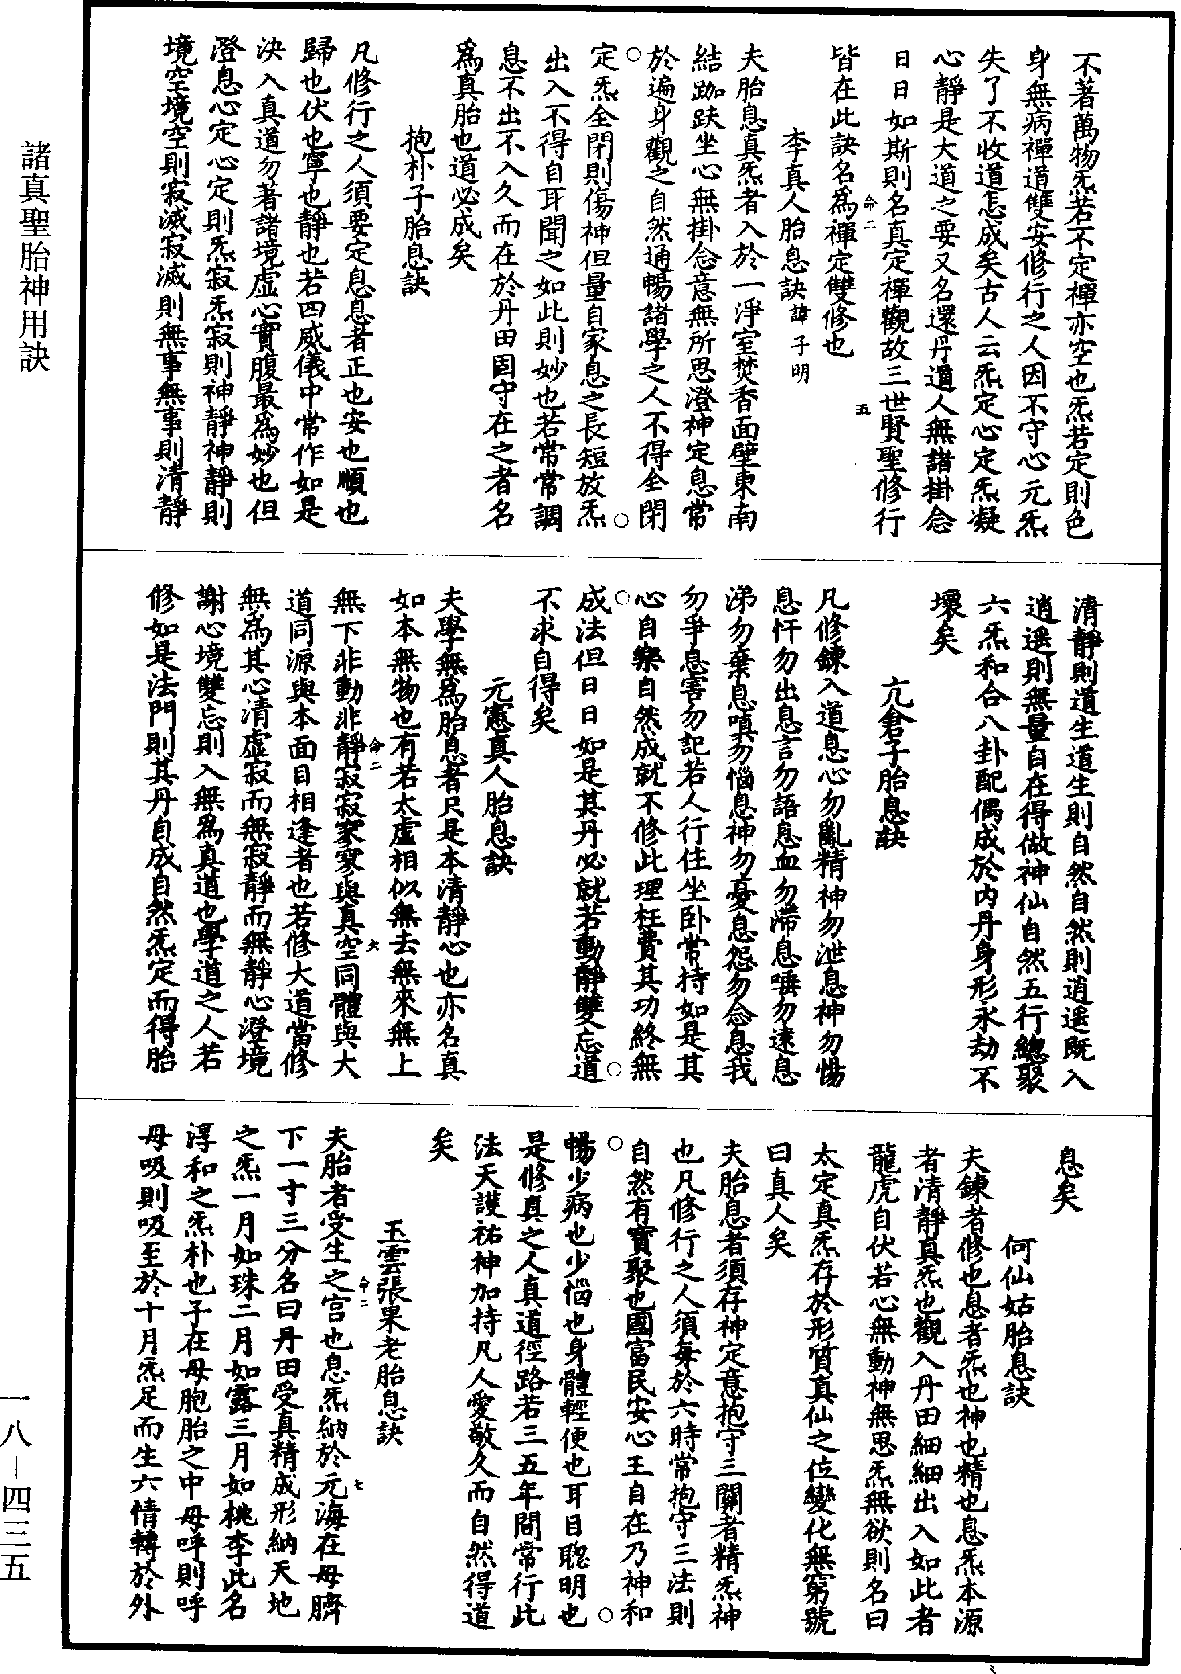 不著萬物炁若不定禪亦空也炁若定則色
身無病禪道雙安修行之人因不守心元炁
失了不收道怎成矣古人云炁定心定炁凝
心靜是大道之要又名還丹道人無諸掛念
日日如斯則名真定禪觀故三世賢聖修行
皆在此訣名為禪定雙修也
命二
五
李真人胎息訣諱子明
夫胎息真炁者入於一淨室焚香面壁東南
結跏趺坐心無掛念意無所思澄神定息常
於遍身觀之自然通暢諸學之人不得全閉
定炁全閉則傷神但量自家息之長短放炁
出入不得自耳聞之如此則妙也若常常調
息不出不入久而在於丹田固守在之者名
為真胎也道必成矣
抱朴子胎息訣
凡修行之人須要定息息者正也安也順也
歸也伏也寧也靜也若四威儀中常作如是
決入真道勿著諸境虛心實腹最為妙也但
澄息心定心定則炁寂炁寂則神靜神靜則
境空境空則寂滅寂滅則無事無事則清靜
清靜則道生道生則自然自然則逍遙既入
逍遙則無量自在得做神仙自然五行總聚
六炁和合八卦配偶成於內丹身形永劫不
壞矣
亢倉子胎息訣
凡修鍊入道息心勿亂精神勿泄息神勿惕
息忓勿出息言勿語息血勿滯息唾勿遠息
涕勿棄息嗔勿惱息神勿憂息怨勿念息我
勿爭息害勿記若人行住坐卧常持如是其
心自樂自然成就不修此理枉費其功終無
成法但日日如是其丹必就若動靜雙忘道
不求自得矣
元憲真人胎息訣
夫學無為胎息者只是本清靜心也亦名真
如本無物也有若太虛相似無去無來無上
無下非動非靜寂寂寥寥與真空同體與大
命二
六
道同源與本面目相逢者也若修大道當修
無為其心清虛寂而無寂靜而無靜心澄境
謝心境雙忘則入無為真道也學道之人若
修如是法門則其丹自成自然炁定而得胎
息矣
何仙姑胎息訣
夫鍊者修也息者炁也神也精也息炁本源
者清靜真炁也觀入丹田細細出入如此者
龍虎自伏若心無動神無思炁無欲則名曰
太定真炁存於形質真仙之位變化無窮號
曰真人矣
夫胎息者須存神定意抱守三關者精炁神
也凡修行之人須每於六時常抱守三法則
自然有寶聚也國富民安心王自在乃神和
暢少病也少惱也身體輕便也耳目聰明也
是修真之人真道徑路若三五年間常行此
法天護祐神加持凡人愛敬久而自然得道
矣
玉雲張果老胎息訣
夫胎者受生之宮也息炁納於元海在母臍
命二
七
下一寸三分名曰丹田受真精成形納天地
之炁一月如珠二月如露三月如桃李此名
淳和之炁朴也子在母胞胎之中母呼則呼
母吸則吸至於十月炁足而生六情轉於外
諸真聖胎神用訣
一八—四三五